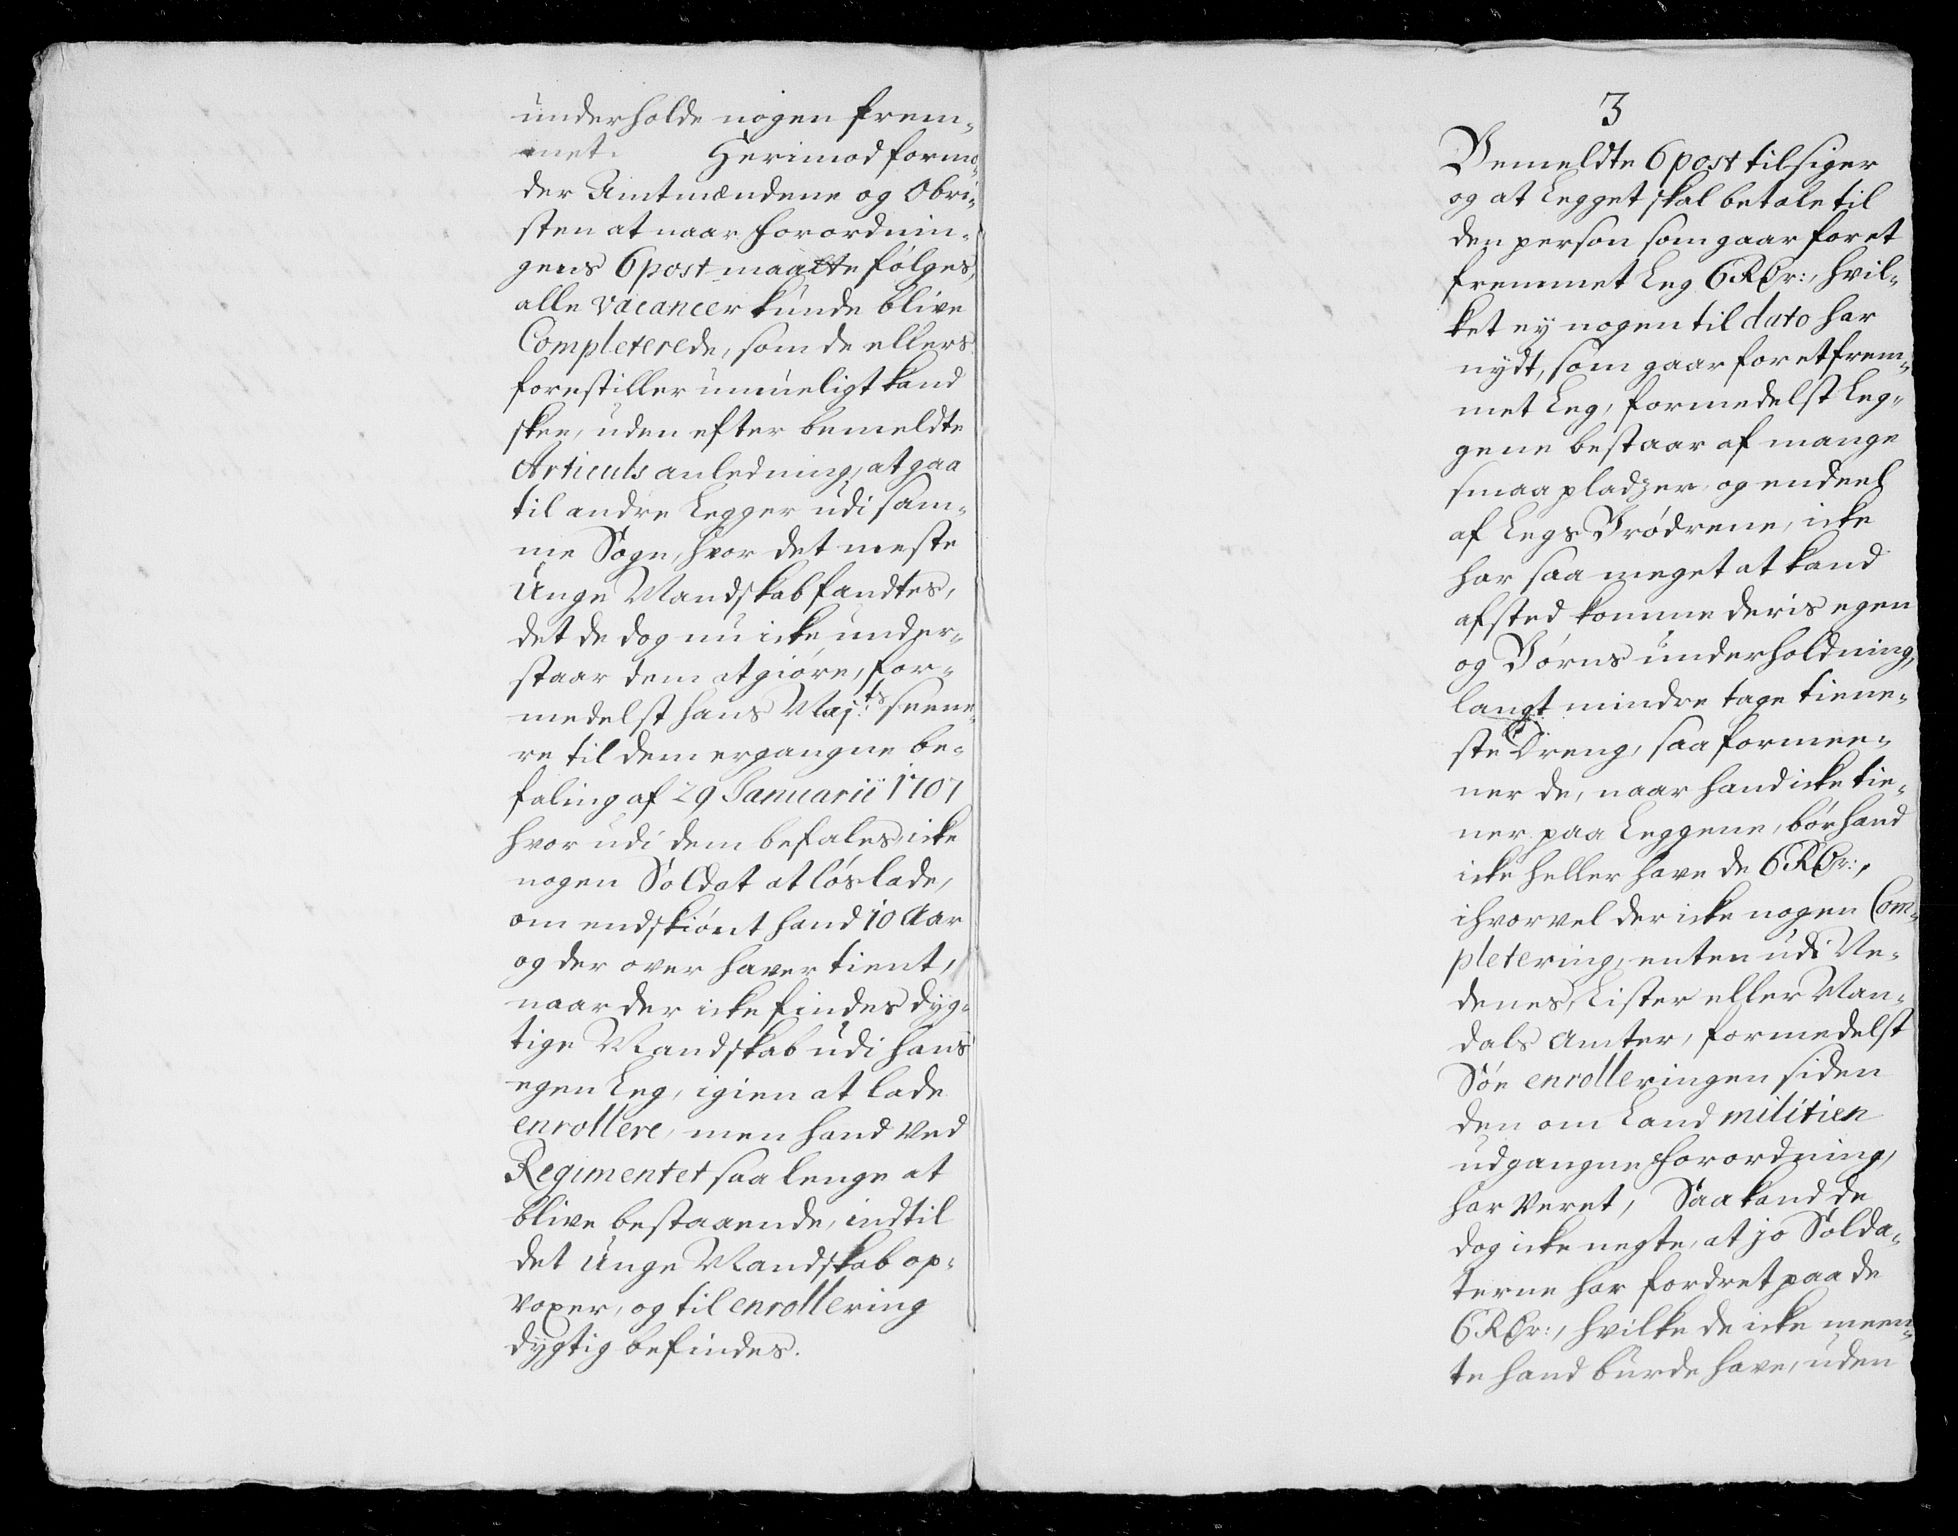 underholde nogen frem-
met. Herimod formo-
der Amtmændene og Obri-
sten at naar Forordnin-
gens 6 post maatte følges,
alle vacancer kunde blive
Completerede, som de ellers
forestiller umueligt kand
skee, uden efter bemeldte
Articuls anledning, at gaa
til andre Legger udi sam-
me Sogn, hvor det meste
Unge Mandskab fandtes,
det de dog nu icke under-
staar dem at giøre, for-
medelst hans Maj:ts seene-
re til dem ergangne be-
faling af 29 Januarii 1707
hvor udi dem befales, icke
nogen Soldat at løslade,
om endskiønt hand 10 Aar
og der over haver tient,
naar der icke findes dyg-
tige Mandskab udi hans
egen Leg, igien at lade
enrollere, men hand ved
Regimentet saa lenge at
blive bestaaende, indtil
det Unge Mandskab op-
voxer, og til enrollering
dygtig befindes.
3
Bemeldte 6 post tilsiger
og at Legget skal betale til
den person som gaar for et
fremmet Leg 6 RDr:, hvil-
ket ey nogen til dato har
nydt, som gaar for et frem-
met Leg, formedelst Leg-
gene bestaar af mange
smaa pladzer, og endeel
af Legs Brødrene, icke
har saa meget at kand
afsted komme deris egen
og Børns underholdning,
langt mindre tage tiene-
ste Dreng, saa formee-
ner de, naar hand icke tie-
ner paa Leggene, bør hand
icke heller have de 6 RDr:,
ihvorvel der icke nogen Com-
pletering, enten udi Ne-
denes, Lister eller Man-
dals Amter, formedelst
Søe enrolleringen siden
den om Land militien
udgangne Forordning,
har veret, Saa kand de
dog icke negte, at jo Solda-
terne har fordret paa de
6 RDr:, hvilke de icke meen-
te hand burde have, uden